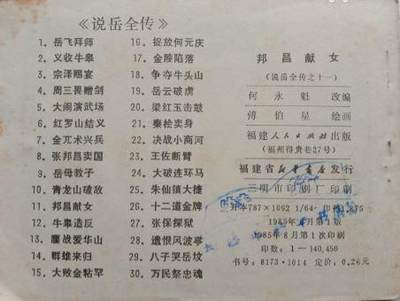 《说岳全传》
1．岳飞拜师
2．义收牛皋
3．宗泽赐宴
4．周三畏赠剑
5．大闹演武场
6．红罗山结义
7．金兀术兴兵
8．张邦昌卖国
9．岳母教子
10．青龙山破敌
11．邦昌献女
12．牛皋造反
13．鏖战爱华山
14．群雄来归
15．大败金粘罕
16．捉放何元庆
17．金陵陷落
18．争夺牛头山
19．岳云破虏
20．梁红玉击鼓
21．秦桧卖身
22．决战小商河
23．王佐断臂
24．大破连环马
25．朱仙镇大捷
26．十二道金牌
27．张保探狱
28．遗恨风波亭
29．八子哭岳坟
30．万民祭忠魂
邦昌献女
（说岳全传之十一）
何永魁 改编
傅伯星 绘画
福建人民出版社出版
（福州得贵巷27号）
福建省新华书店发行
三明市印刷厂印刷
787×1092 1/64
1985年 第1版
1985年8月第1次印刷
印数：1—140,450
书号：8173·1014 定价：0.26元